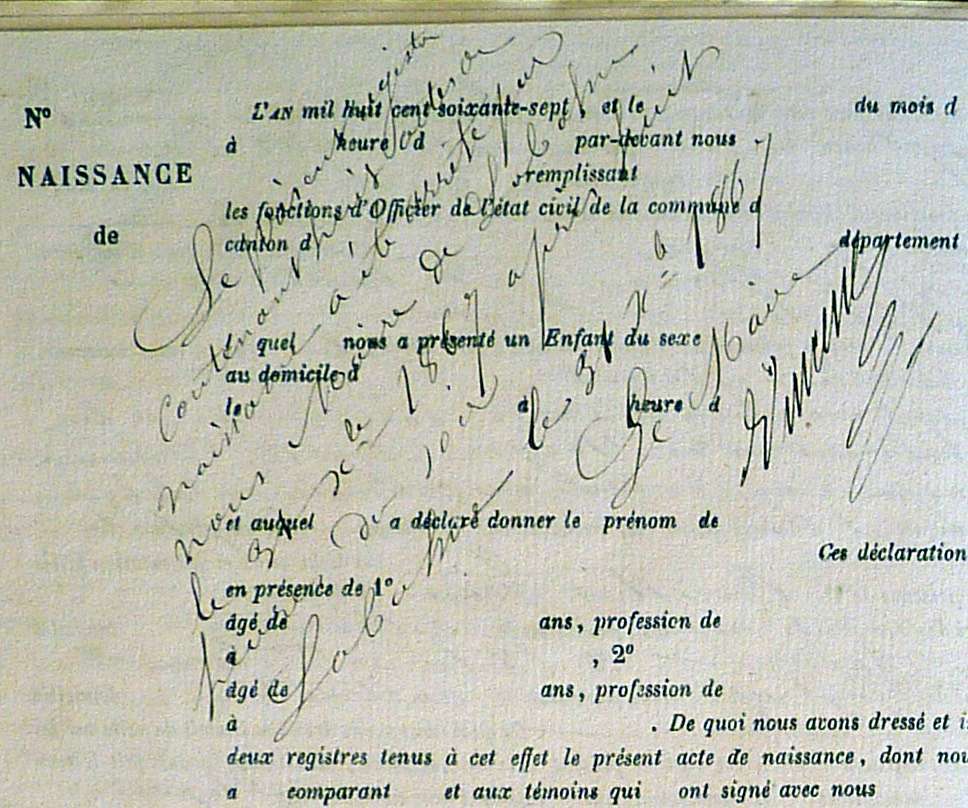 N° L'AN mil huit cent soixante-sept et le du mois d
à heure d par-devant nous
NAISSANCE , remplissant
les fonctions d'Officier de l'état civil de la commune d
de canton d département
l quel nous a présenté un Enfant du sexe
au domicile d
le à heure d
et auquel a déclaré donner le prénom de
Ces déclaration
en présence de 1°
âgé de ans, profession de
à , 2°
âgé de ans, profession de
à . De quoi nous avons dressé et i
deux registres tenus à cet effet le présent acte de naissance, dont nou
a comparant et aux témoins qui ont signé avec nous
Le présent registre
contenant huit
a été arrêté par
nous Maire de
le 31 Xbre 1867 après huit
du soir
le 31 Xbre 1867
Le Maire
Vincent